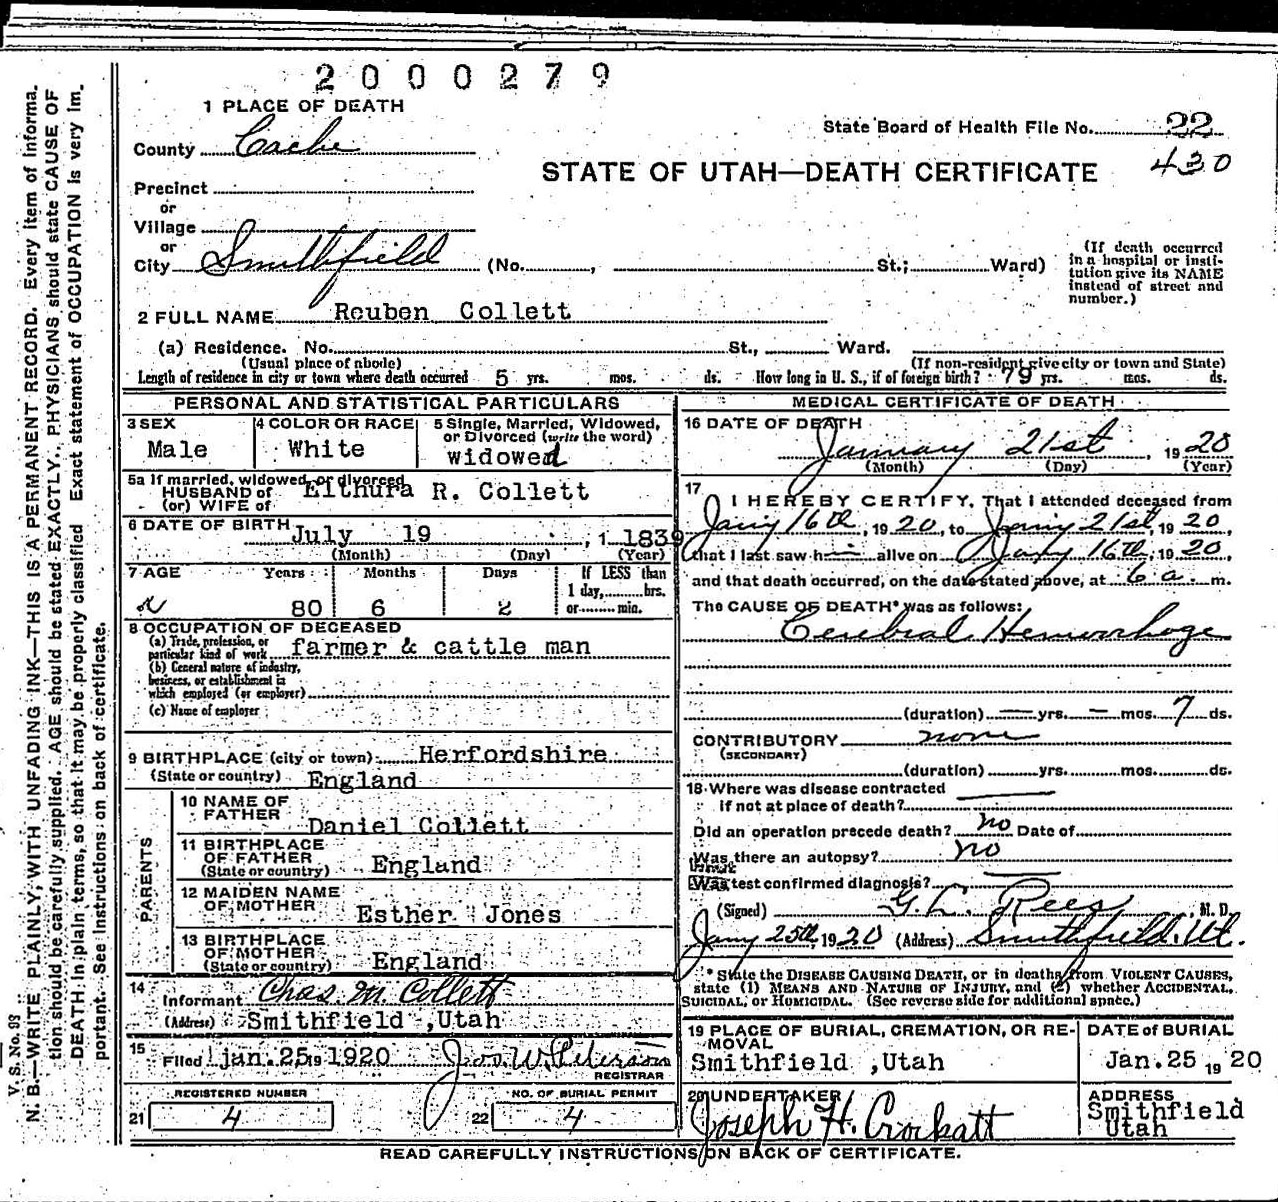 2000279
1 PLACE OF DEATH
State Board of Health File No. 22
County Cache
430
STATE OF UTAH—DEATH CERTIFICATE
Precinct
or
Village
or
City Smithfield (No. , St.; Ward)
(If death occurred in a hospital or institution give its NAME instead of street and number.)
2 FULL NAME Reuben Collett
(a) Residence. No. St., Ward.
(Usual place of abode) (If non-resident give city or town and State)
Length of residence in city or town where death occurred 5 yrs. mos. ds. How long in U. S., if of foreign birth? 79 yrs. mos. ds.
PERSONAL AND STATISTICAL PARTICULARS
3 SEX Male
4 COLOR OR RACE White
5 Single, Married, Widowed, or Divorced (write the word) widowed
5a If married, widowed, or divorced
HUSBAND of
(or) WIFE of
Elthura R. Collett
6 DATE OF BIRTH July 19, 1839
(Month) (Day) (Year)
7 AGE Years Months Days If LESS than
1 day, hrs.
80 6 2 or min.
8 OCCUPATION OF DECEASED
(a) Trade, profession, or
particular kind of work farmer & cattle man
(b) General nature of industry,
business, or establishment in
which employed (or employer)
(c) Name of employer
9 BIRTHPLACE (city or town) Herfordshire
(State or country) England
PARENTS
10 NAME OF
FATHER
Daniel Collett
11 BIRTHPLACE
OF FATHER
(State or country) England
12 MAIDEN NAME
OF MOTHER
Esther Jones
13 BIRTHPLACE
OF MOTHER
(State or country) England
14
Informant Chas. M. Collett
(Address) Smithfield ,Utah
15
Filed jan.25 19 1920 Jos. W. Peterson
REGISTRAR
REGISTERED NUMBER
21 4
NO. OF BURIAL PERMIT
22 4
MEDICAL CERTIFICATE OF DEATH
16 DATE OF DEATH
January 21st, 1920
(Month) (Day) (Year)
17
I HEREBY CERTIFY, That I attended deceased from
Jany 16th, 1920, to Jany 21st, 1920,
that I last saw h alive on Jany 16th, 1920,
and that death occurred, on the date stated above, at 6 a. m.
The CAUSE OF DEATH* was as follows:
Cerebral Hemorrhage
(duration) — yrs. — mos. 7 ds.
CONTRIBUTORY none
(SECONDARY)
(duration) yrs. mos. ds.
18 Where was disease contracted
if not at place of death?
Did an operation precede death? no Date of
Was there an autopsy? no
What test confirmed diagnosis?
(Signed) G. L. Rees, M. D.
Jany 25th, 1920 (Address) Smithfield, Ut.
* State the DISEASE CAUSING DEATH, or in deaths from VIOLENT CAUSES,
state (1) MEANS AND NATURE OF INJURY, and (2) whether ACCIDENTAL,
SUICIDAL, or HOMICIDAL. (See reverse side for additional space.)
19 PLACE OF BURIAL, CREMATION, OR RE-
MOVAL
Smithfield ,Utah
DATE OF BURIAL
Jan.25 1920
20 UNDERTAKER
Joseph H. Crockatt
ADDRESS
Smithfield
Utah
READ CAREFULLY INSTRUCTIONS ON BACK OF CERTIFICATE.
V. S. No. 99
N. B.—WRITE PLAINLY, WITH UNFADING INK—THIS IS A PERMANENT RECORD. Every item of informa-
tion should be carefully supplied. AGE should be stated EXACTLY. PHYSICIANS should state CAUSE OF
DEATH in plain terms, so that it may be properly classified. Exact statement of OCCUPATION is very im-
portant. See instructions on back of certificate.